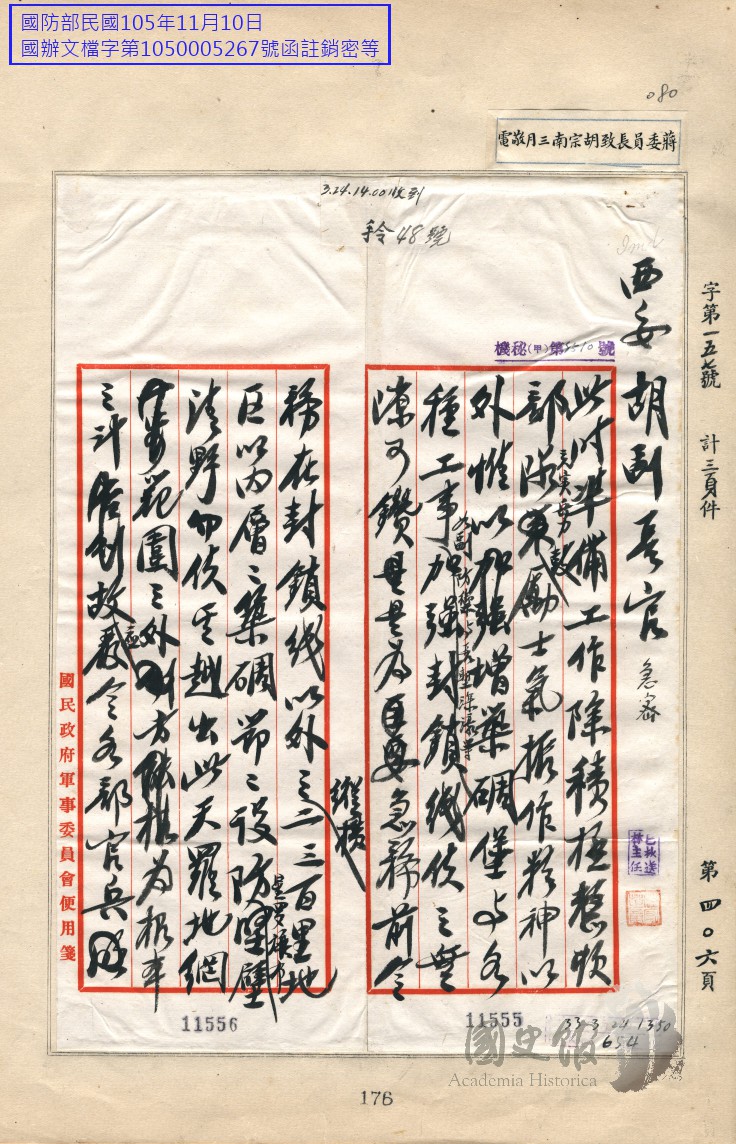 國防部民國105年11月10日
國辦文檔字第1050005267號函註銷密等
080
蔣委員長致胡宗南三月敬電
3.24.14.00收到
手令48號
機秘(甲)第5510號
字第一五七號 計三頁件
第四０六頁
西安胡副長官 急密
此時準備工作除積極整頓
部隊充實兵力激勵士氣振作精神以
外惟以加強增築碉堡與各
種工事加強封鎖線使之無
隙可鑽是為首要急務前令
如副防禦與長塹深壕等
務在封鎖線以外之二三百里縱橫地
區以內層層築碉節節設防堅壁
星羅棋布
清野勿使其越出此天羅地網
範圍之外
之計
故應令各部官兵
國民政府軍事委員會便用箋
已抄送
林主任
11556
11555
33 3 24 1350
654
國史館
Academia Historica
176